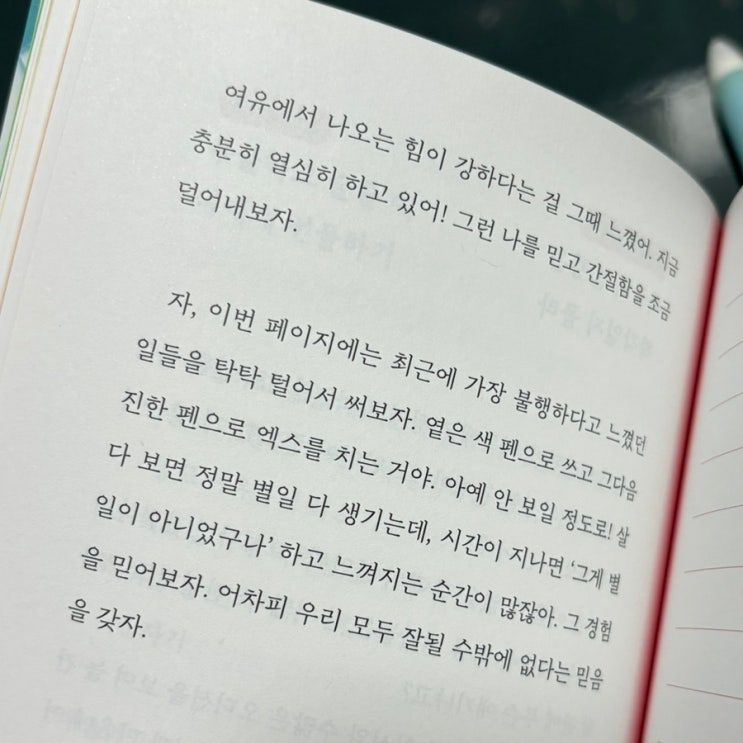 여유에서 나오는 힘이 강하다는 걸 그때 느꼈어. 지금
충분히 열심히 하고 있어! 그런 나를 믿고 간절함을 조금
덜어내보자.
자, 이번 페이지에는 최근에 가장 불행하다고 느꼈던
일들을 탁탁 털어서 써보자. 옅은 색 펜으로 쓰고 그다음
진한 펜으로 엑스를 치는 거야. 아예 안 보일 정도로! 살
다 보면 정말 별일 다 생기는데, 시간이 지나면 ‘그게 별
일이 아니었구나’ 하고 느껴지는 순간이 많잖아. 그 경험
을 믿어보자. 어차피 우리 모두 잘될 수밖에 없다는 믿음
을 갖자.